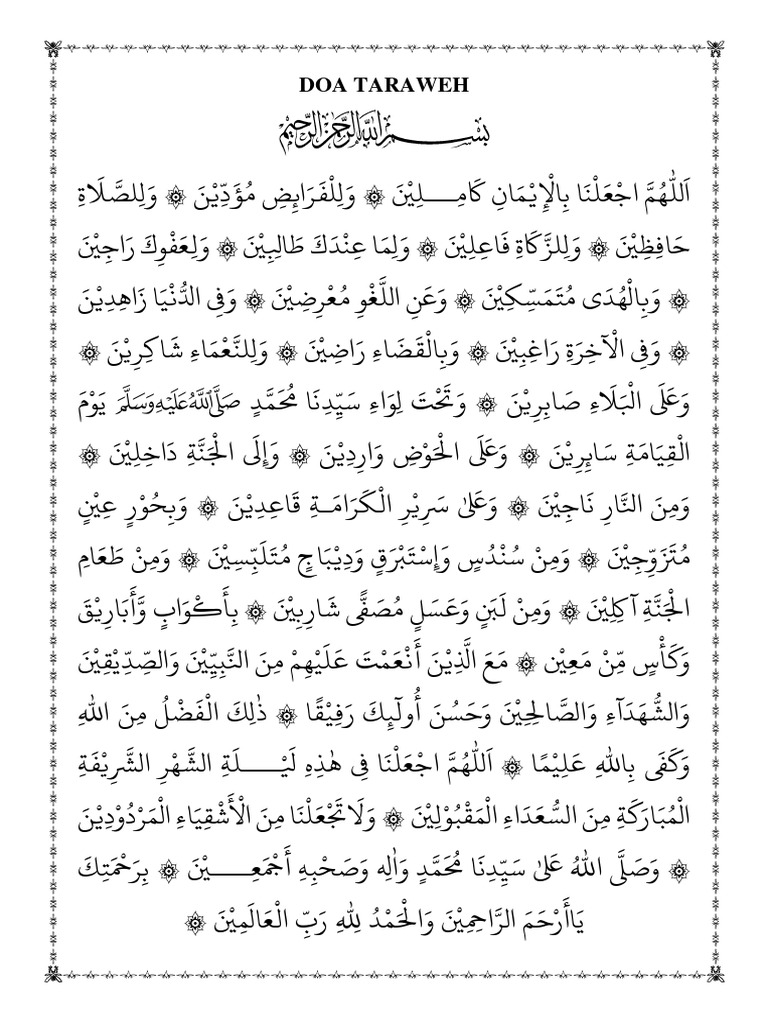 DOA TARAWEH
بِسْمِ اللهِ الرَّحْمٰنِ الرَّحِيْمِ
اَللّٰهُمَّ اجْعَلْنَا بِالْإِيْمَانِ كَامِـــلِيْنَ ۞ وَلِلْفَرَائِضِ مُؤَدِّيْنَ ۞ وَلِلصَّلَاةِ
حَافِظِيْنَ ۞ وَلِلزَّكَاةِ فَاعِلِيْنَ ۞ وَلِمَا عِنْدَكَ طَالِبِيْنَ ۞ وَلِعَفْوِكَ رَاجِيْنَ
۞ وَبِالْهُدَى مُتَمَسِّكِيْنَ ۞ وَعَنِ اللَّغْوِ مُعْرِضِيْنَ ۞ وَفِى الدُّنْيَا زَاهِدِيْنَ
۞ وَفِى الْآخِرَةِ رَاغِبِيْنَ ۞ وَبِالْقَضَاءِ رَاضِيْنَ ۞ وَلِلنَّعْمَاءِ شَاكِرِيْنَ ۞
وَعَلَى الْبَلَاءِ صَابِرِيْنَ ۞ وَتَحْتَ لِوَاءِ سَيِّدِنَا مُحَمَّدٍ صَلَّى اللهُ عَلَيْهِ وَسَلَّمَ يَوْمَ
الْقِيَامَةِ سَائِرِيْنَ ۞ وَعَلَى الْحَوْضِ وَارِدِيْنَ ۞ وَإِلَى الْجَنَّةِ دَاخِلِيْنَ ۞
وَمِنَ النَّارِ نَاجِيْنَ ۞ وَعَلىٰ سَرِيْرِ الْكَرَامَـةِ قَاعِدِيْنَ ۞ وَبِحُوْرٍ عِيْنٍ
مُتَزَوِّجِيْنَ ۞ وَمِنْ سُنْدُسٍ وَإِسْتَبْرَقٍ وَدِيْبَاجٍ مُتَلَبِّسِيْنَ ۞ وَمِنْ طَعَامِ
الْجَنَّةِ آكِلِيْنَ ۞ وَمِنْ لَبَنٍ وَعَسَلٍ مُصَفًّى شَارِبِيْنَ ۞ بِأَكْوَابٍ وَّأَبَارِيْقَ
وَكَأْسٍ مِّنْ مَعِيْن ۞ مَعَ الَّذِيْنَ أَنْعَمْتَ عَلَيْهِمْ مِنَ النَّبِيِّيْنَ وَالصِّدِّيْقِيْنَ
وَالشُّهَدَآءِ وَالصَّالِحِيْنَ وَحَسُنَ أُولٰٓئِكَ رَفِيْقًا ۞ ذٰلِكَ الْفَضْلُ مِنَ اللهِ
وَكَفَى بِاللهِ عَلِيْمًا ۞ اَللّٰهُمَّ اجْعَلْنَا فِى هٰذِهِ لَيْـــلَةِ الشَّهْرِ الشَّرِيْفَةِ
الْمُبَارَكَةِ مِنَ السُّعَدَاءِ الْمَقْبُوْلِيْنَ ۞ وَلَا تَجْعَلْنَا مِنَ الْأَشْقِيَاءِ الْمَرْدُوْدِيْنَ
۞ وَصَلَّى اللهُ عَلىٰ سَيِّدِنَا مُحَمَّدٍ وَاٰلِه وَصَحْبِهِ أَجْمَعِـــيْنَ ۞ بِرَحْمَتِكَ
يَاأَرْحَمَ الرَّاحِمِيْنَ وَالْحَمْدُ لِلهِ رَبِّ الْعَالَمِيْنَ ۞